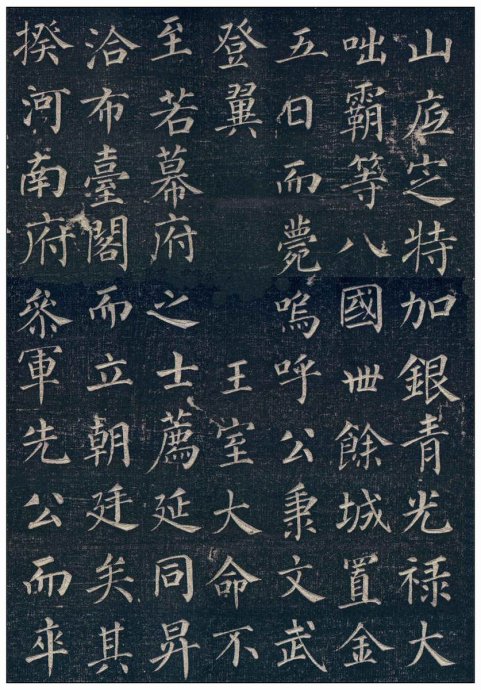 山定特加銀青光祿大
咄霸等八國卌餘城置金
五日而薨嗚呼公秉文武
登翼 王室大命不
至若幕府之士薦延同昇
洽布臺閣而立朝廷矣其
揆河南府叅軍先公而卒